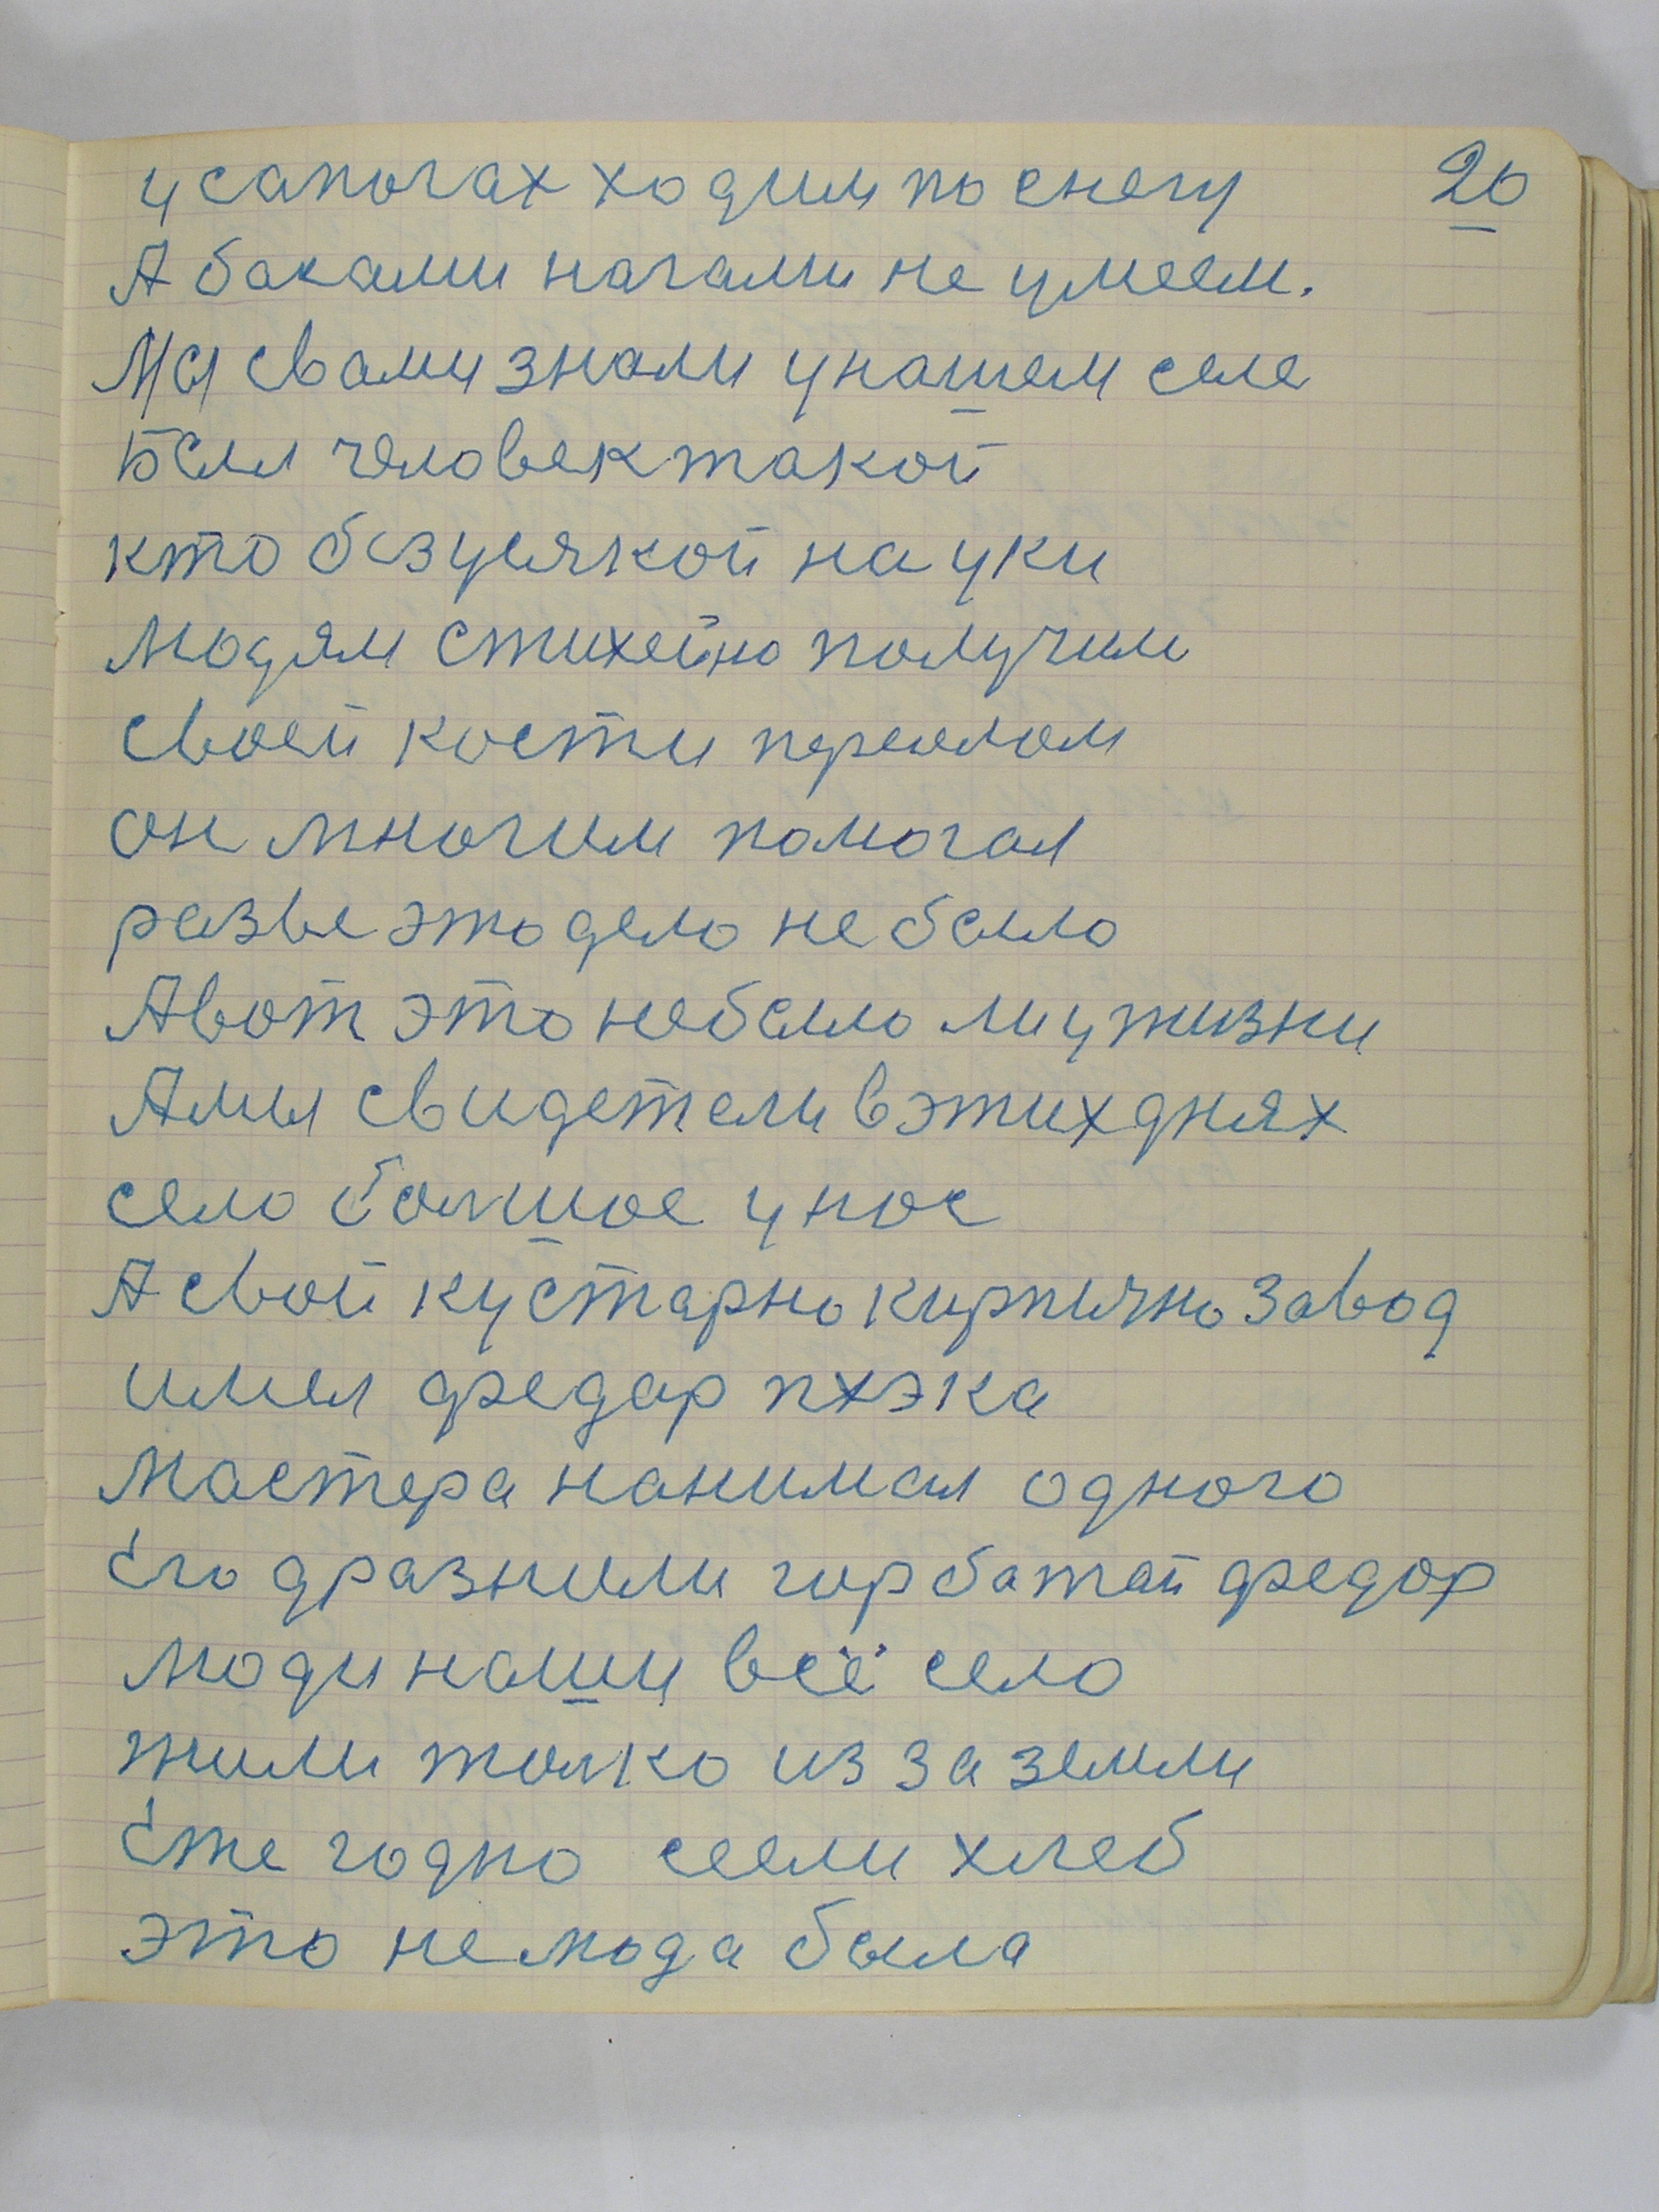 у сапогах ходим по снегу 20
А баками нагами не умеем.
Мы свами знали у нашем селе
был человек такой
кто без усякой науки
людям стихейно получим
своей кости перелом
он многим помогал
разве это дело не было
Авот это небыло ли ужизни
Амы свидетели вэтих днях
село болшое у нас
А свой кустарно кирпично завод
имел федар пхэка
Мастера нанимал одного
Его дразнили горбатай федор
люди наши всё село
жили толко из за земли
Еже годно сеели хлеб
это не мода была